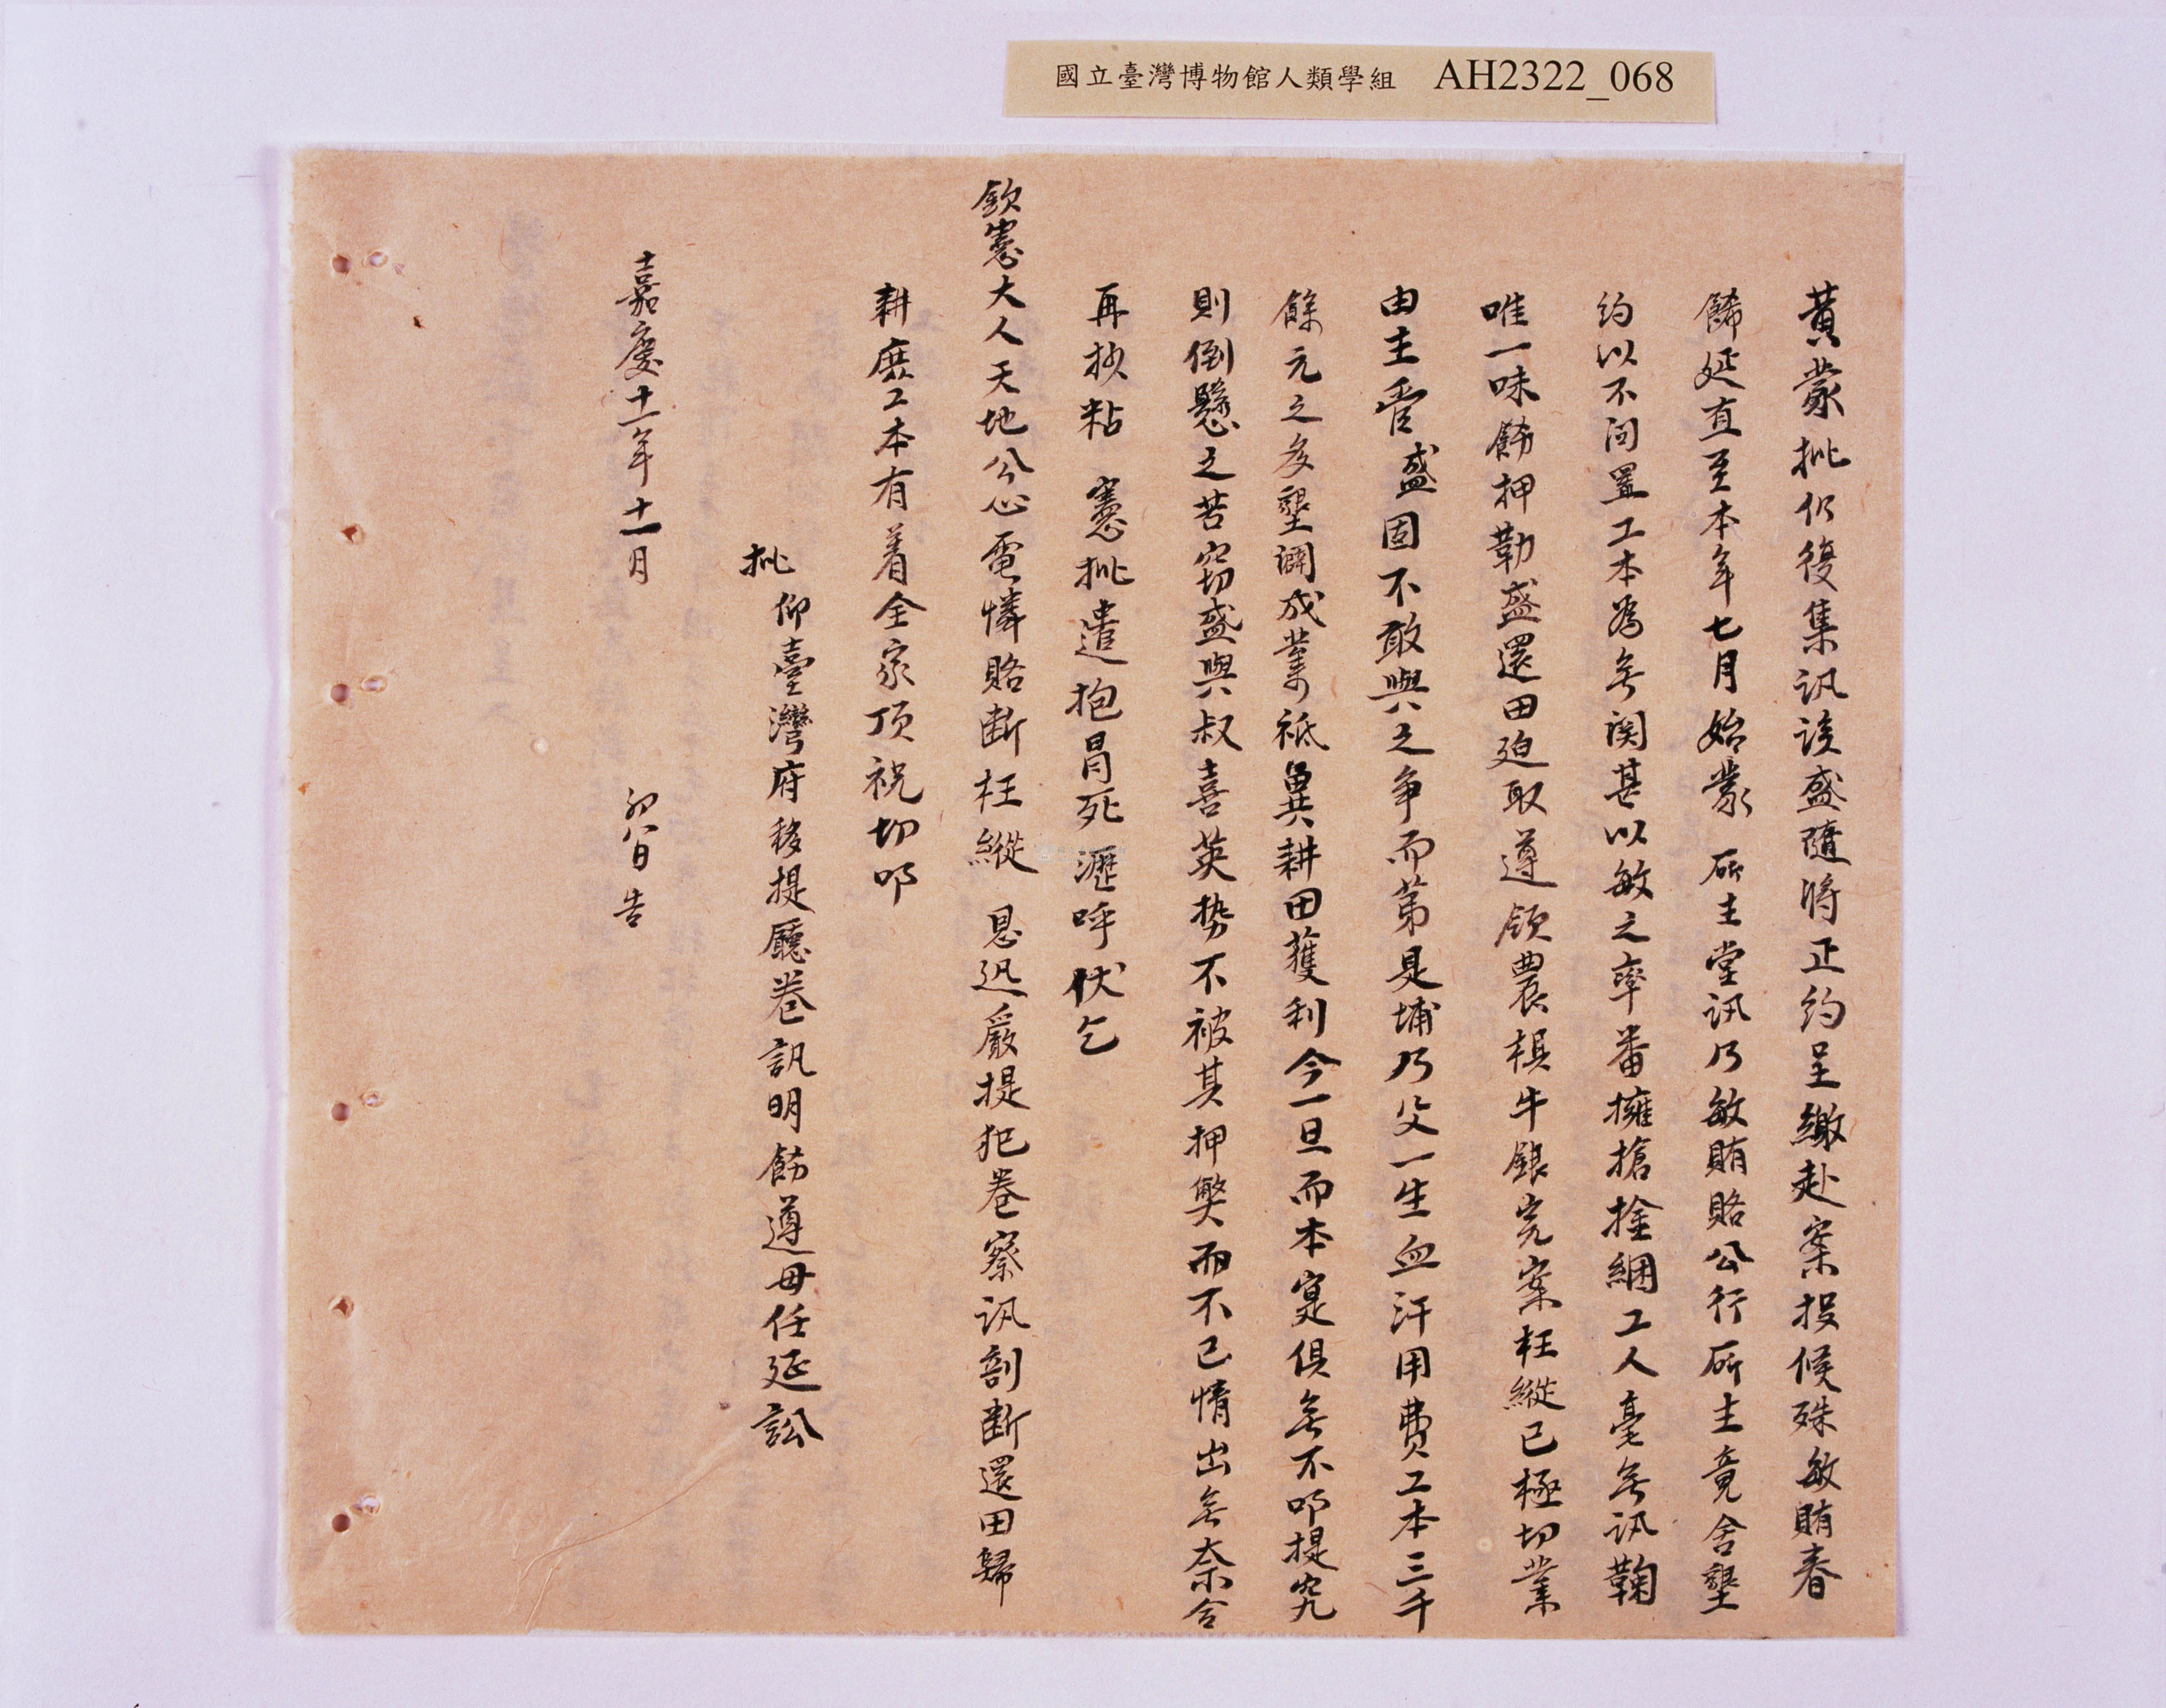 國立臺灣博物館人類學組 AH2322_068
黃蒙批仍復集訊該盛隨將正約呈繳赴案投候殊敏賄春
餙延直至本年七月始蒙 廳主堂訊乃敏賄賂公行廳主竟舍墾
約以不问置工本為无関甚以敏之率番擁搶捡綑工人毫无訊鞠
唯一味飭押勒盛還田迫取遵領農椇牛銀完案枉縱已極切業
由主管盛固不敢與之争而第是埔乃父一生血汗用费工本三千
餘元之多墾闢成業祗冀耕田獲利今一旦而本寔俱无不叩提究
則倒懸之苦窃盛與叔喜英势不被其押斃而不已情出无奈合
再抄粘 憲批遣抱冒死瀝呼伏乞
欽憲大人天地公心電憐賂断枉縱 恩迅嚴提犯卷察訊剖断還田歸
耕庶工本有着全家顶祝切叩
批 仰臺灣府移提廳卷訊明飭遵毋任延訟
嘉慶十一年十一月 初八日 告